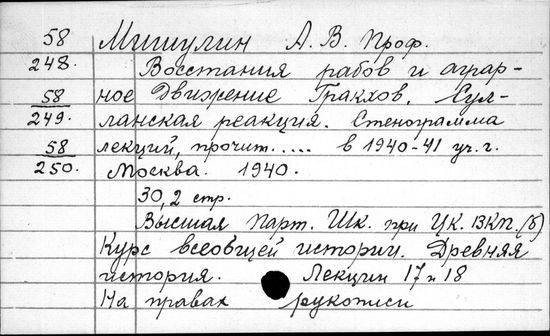 58 Мишулин А. В. Проф.
248. Восстания рабов и аграр-
58 ное Движение Гракхов. Сул-
249. ланская реакция. Стенограмма
58 лекций, прочит..... в 1940-41 уч. г.
250. Москва. 1940.
30,2 стр.
Высшая Парт. Шк. при ЦК. ВКП.(б)
Курс всеобщей истории. Древняя
история. Лекции 17 и 18
На правах рукописи